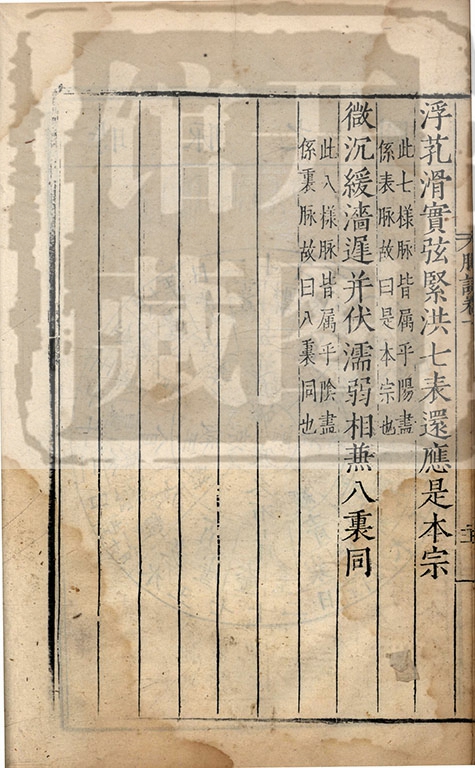 浮芤滑實弦緊洪七表還應是本宗
此七様脉皆属乎陽盡
係表脉故曰是本宗也
微沉緩濇遲并伏濡弱相兼八裏同
此八様脉皆属乎陰盡
係裏脉故曰八裏同也